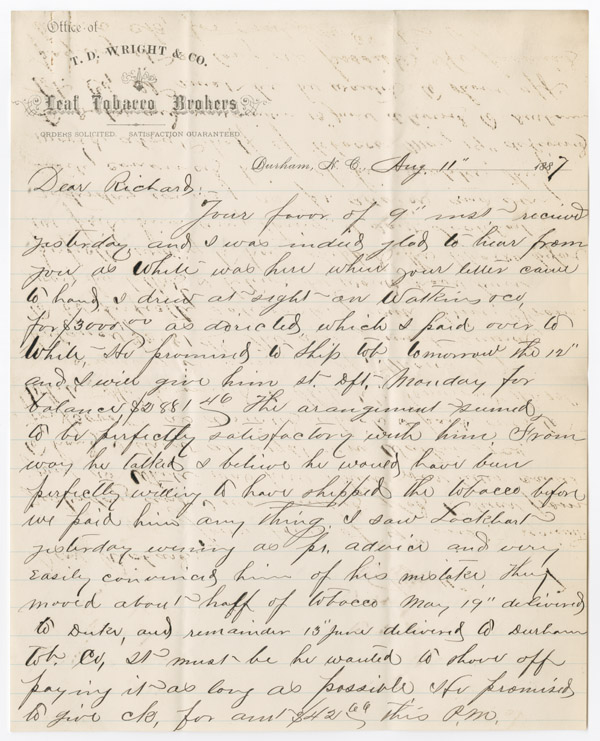 Office of
T. D. WRIGHT & CO.
Leaf Tobacco Brokers
ORDERS SOLICITED. SATISFACTION GUARANTEED.
Durham, N. C., Aug. 11" 1887
Dear Richard:
Your favor of 9" inst- received
yesterday and I was indeed glad to hear from
you, as White was here when your letter came
to hand, I drew at sight on Watkins & Co,
for $3000.00 as directed, which I paid over to
White, He promised to ship tob. tomorrow the 12"
and I will give him st. dft. Monday for
balance $2881 46 The arangement seemed
to be perfectly satisfactory with him. From
way he talked I believe he would have been
perfectly willing to have shipped the tobacco before
we paid him any thing. I saw Lockhart
yesterday evening as pr. advice and very
easily convinced him of his mistake, They
moved about haff of tobacco May 19" delivered
to Duke, and remainder 13" June delivered to Durham
tob. Co, It must be he wanted to shove off
paying it as long as possible He promised
to give ck, for amt $42 66 this P.M.